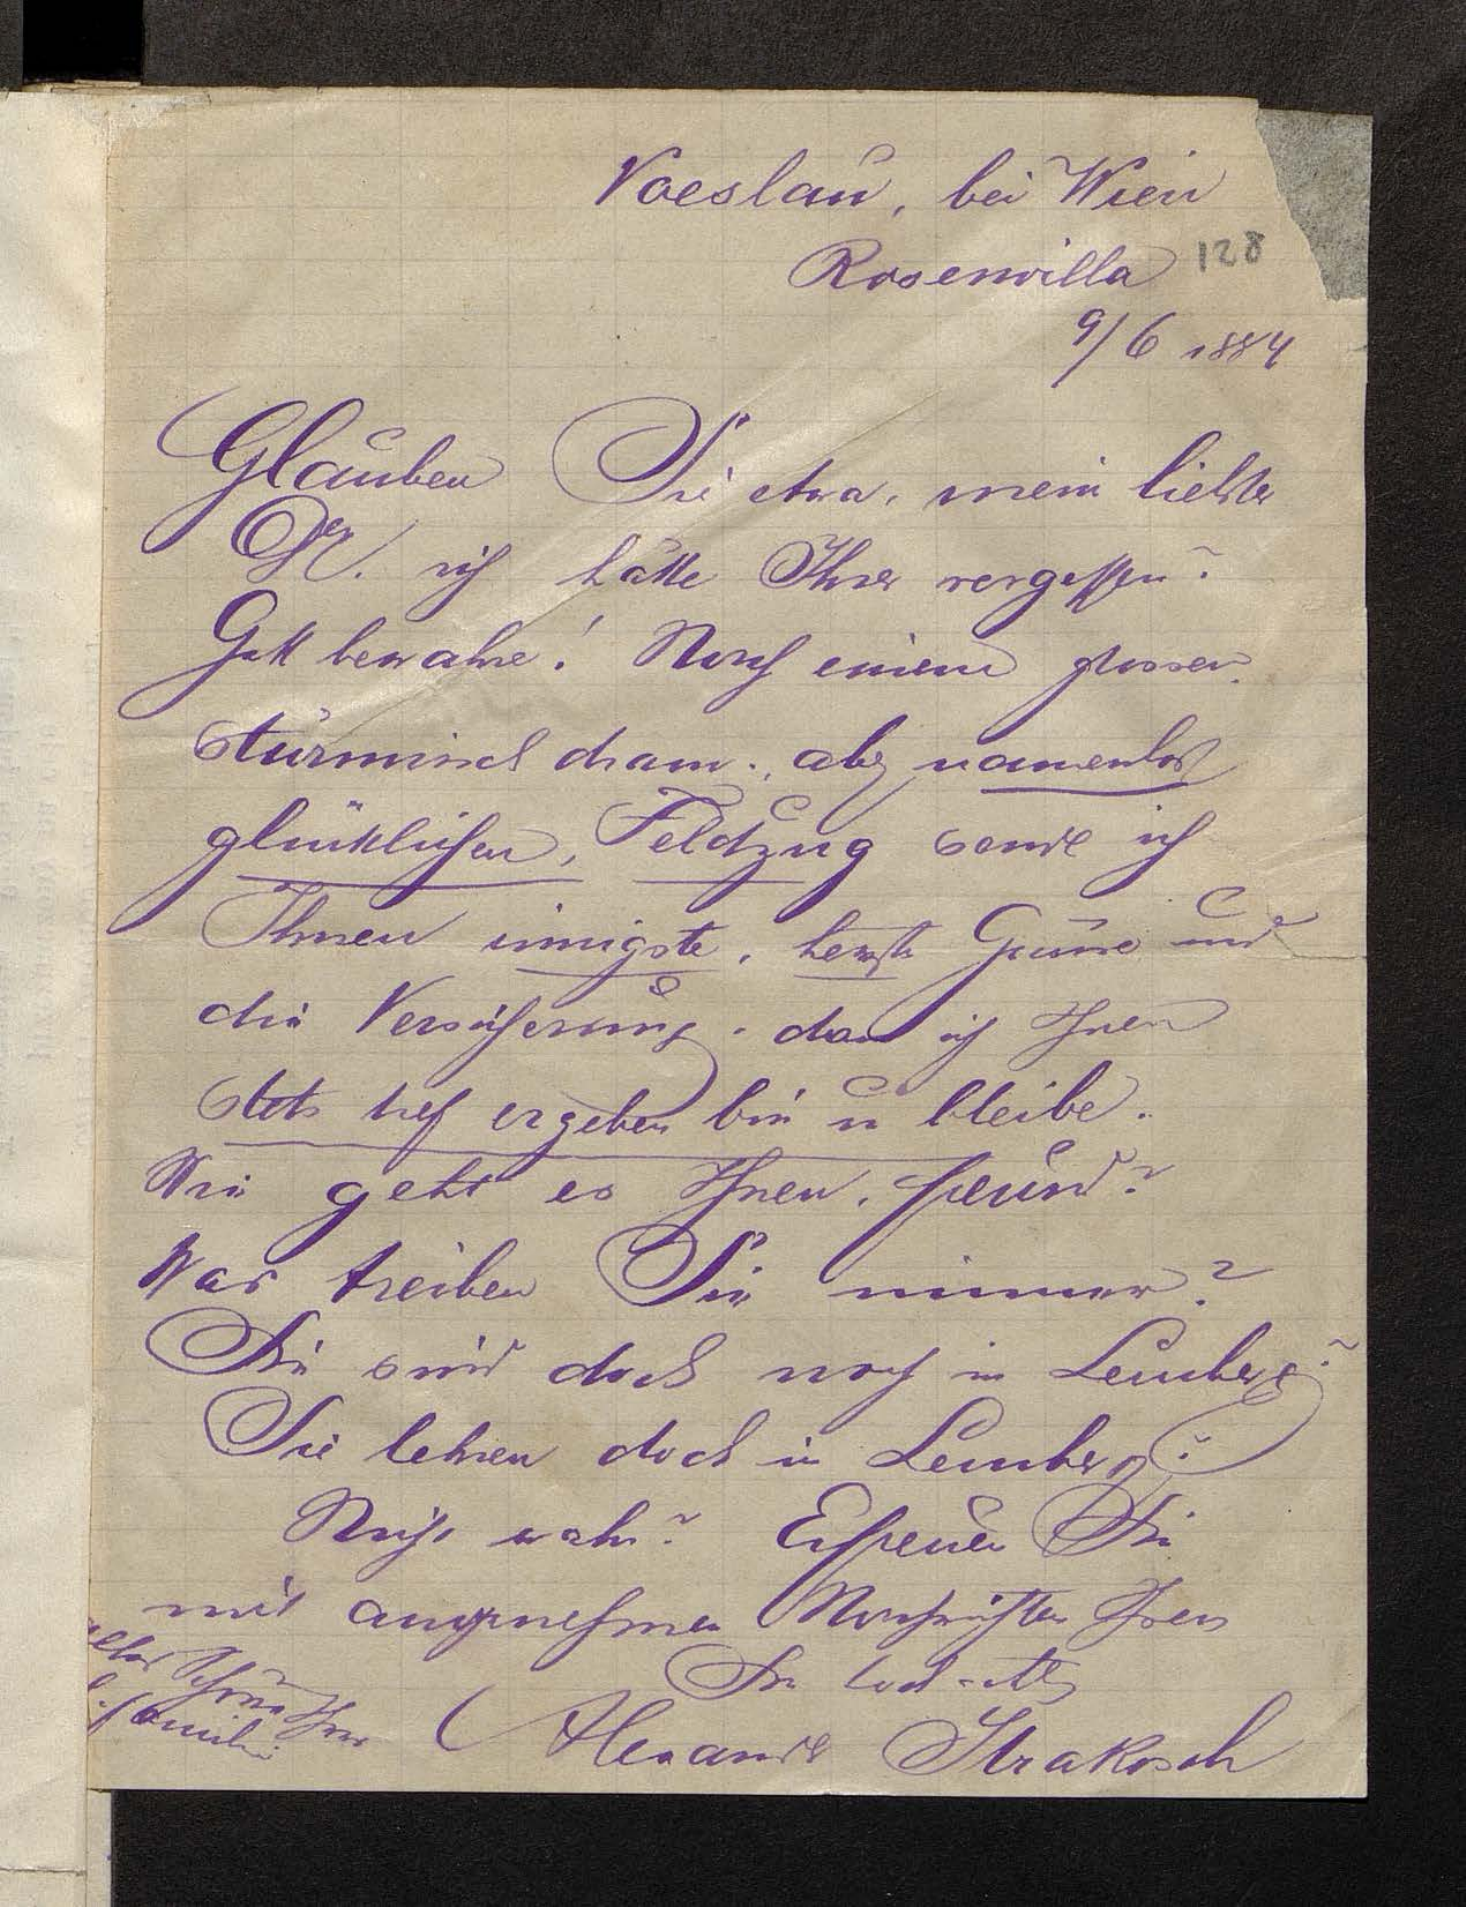 Voeslau, bei Wien
Rosenvilla 128
9/6 1884
Glauben Sie etwa, mein liebster
Dr. ich hätte Ihrer vergessen?
Gott bewahre! Nach einem grossen
stürmisch dram., aber namenlos
glücklichen, Feldzug sende ich
Ihnen innigste, herzlste Grüsse und
die Versicherung, dass ich Ihnen
stets tief ergeben bin u bleibe.
Wie geht es Ihnen, Freund?
Was treiben Sie immer?
Sie sind doch noch in Lemberg?
Sie lehren doch in Lemberg?
Nicht wahr? Erfreuen Sie
mit angenehmen Nachrichten Ihren
Sie
alles Schöne Ihrer
Familie
Alexander Strakosch